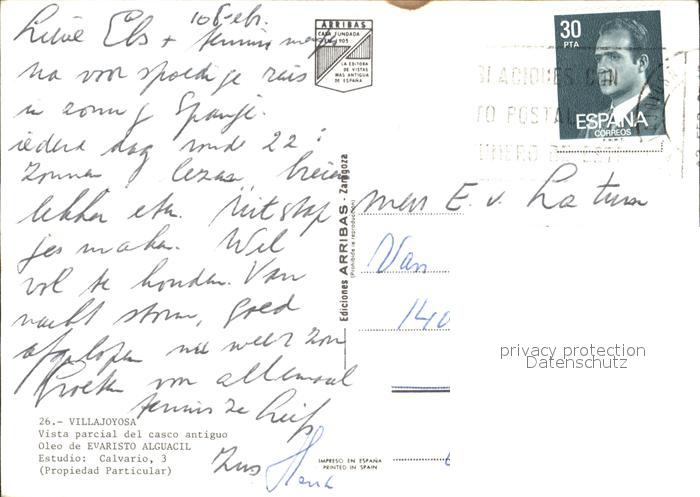 10 Febr.
Lieve Els +
Na voor spoedige reis
in zonnig Spanje.
iedere dag rond 22°
Zonnen lezen breien
lekker eten. Uitstap
jes maken. Wel
vol te houden. Van
nacht storm, goed
afgelopen nu weer zon
Groeten van allemaal
Zus Henk
26.- VILLAJOYOSA
Vista parcial del casco antiguo
Oleo de EVARISTO ALGUACIL
Estudio: Calvario, 3
(Propiedad Particular)
ARRIBAS
CASA FUNDADA
EN 1905
LA EDITORA
DE VISTAS
MAS ANTIGUA
DE ESPAÑA
Ediciones ARRIBAS - Zaragoza
(Prohibida la reproducción)
IMPRESO EN ESPAÑA
PRINTED IN SPAIN
30
PTA
ESPAÑA
CORREOS
F.N.M.T.
mevr E. v.
Van
140
privacy protection
Datenschutz